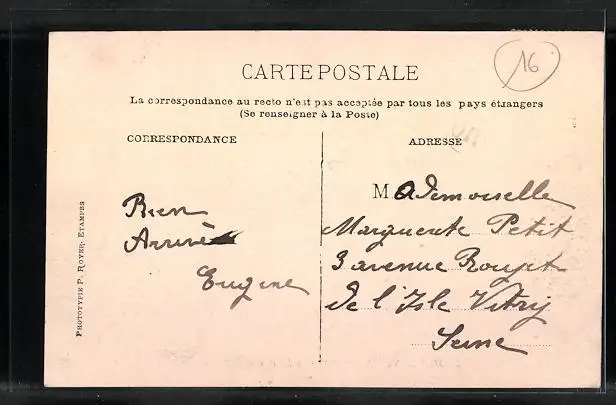 16
CARTE POSTALE
La correspondance au recto n'est pas acceptée par tous les pays étrangers
(Se renseigner à la Poste)
CORRESPONDANCE
ADRESSE
Bien
Arrivé
Eugène
Mademoiselle
Marguerite Petit
3 avenue Rouget
de l'Isle Vitry
Seine
PHOTOTYPIE P. ROYER, ETAMPES